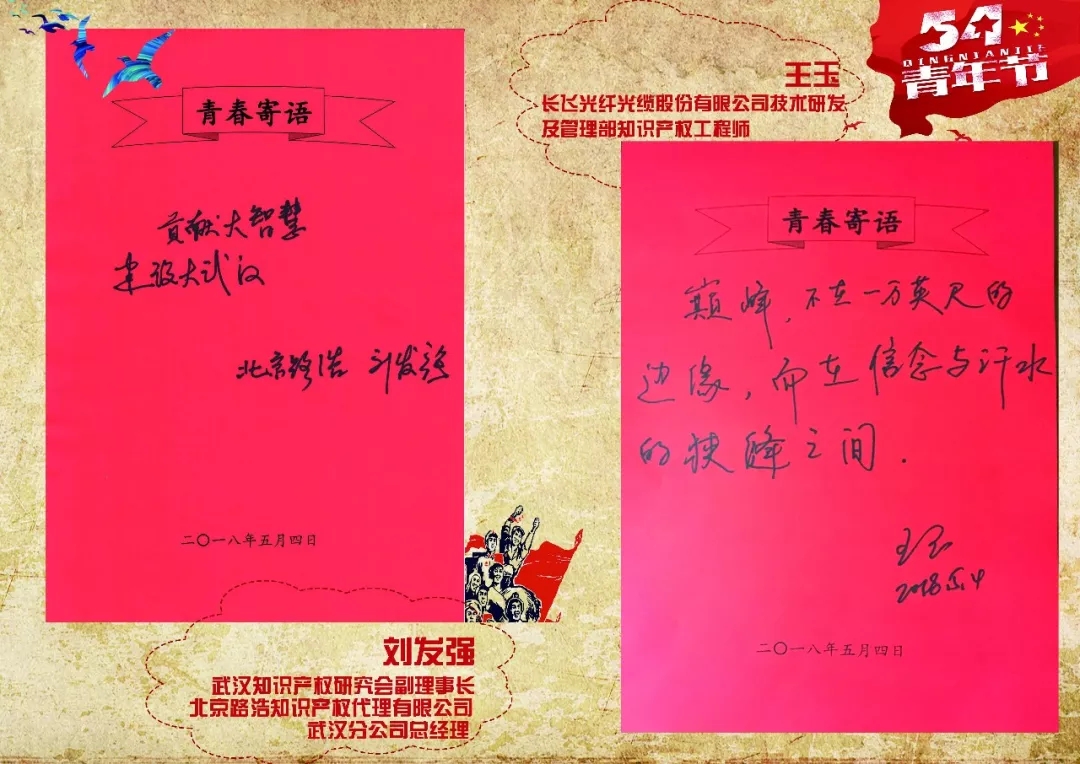 青春寄语
贡献大智慧
建设大武汉
北京路浩 刘发强
二〇一八年五月四日
刘发强
武汉知识产权研究会副理事长
北京路浩知识产权代理有限公司
武汉分公司总经理
54
QINGNIANJIE
青年节
王玉
长飞光纤光缆股份有限公司技术研发
及管理部知识产权工程师
青春寄语
巅峰，不在一万英尺的
边缘，而在信念与汗水
的狭缝之间．
王玉
二〇一八年五月四日